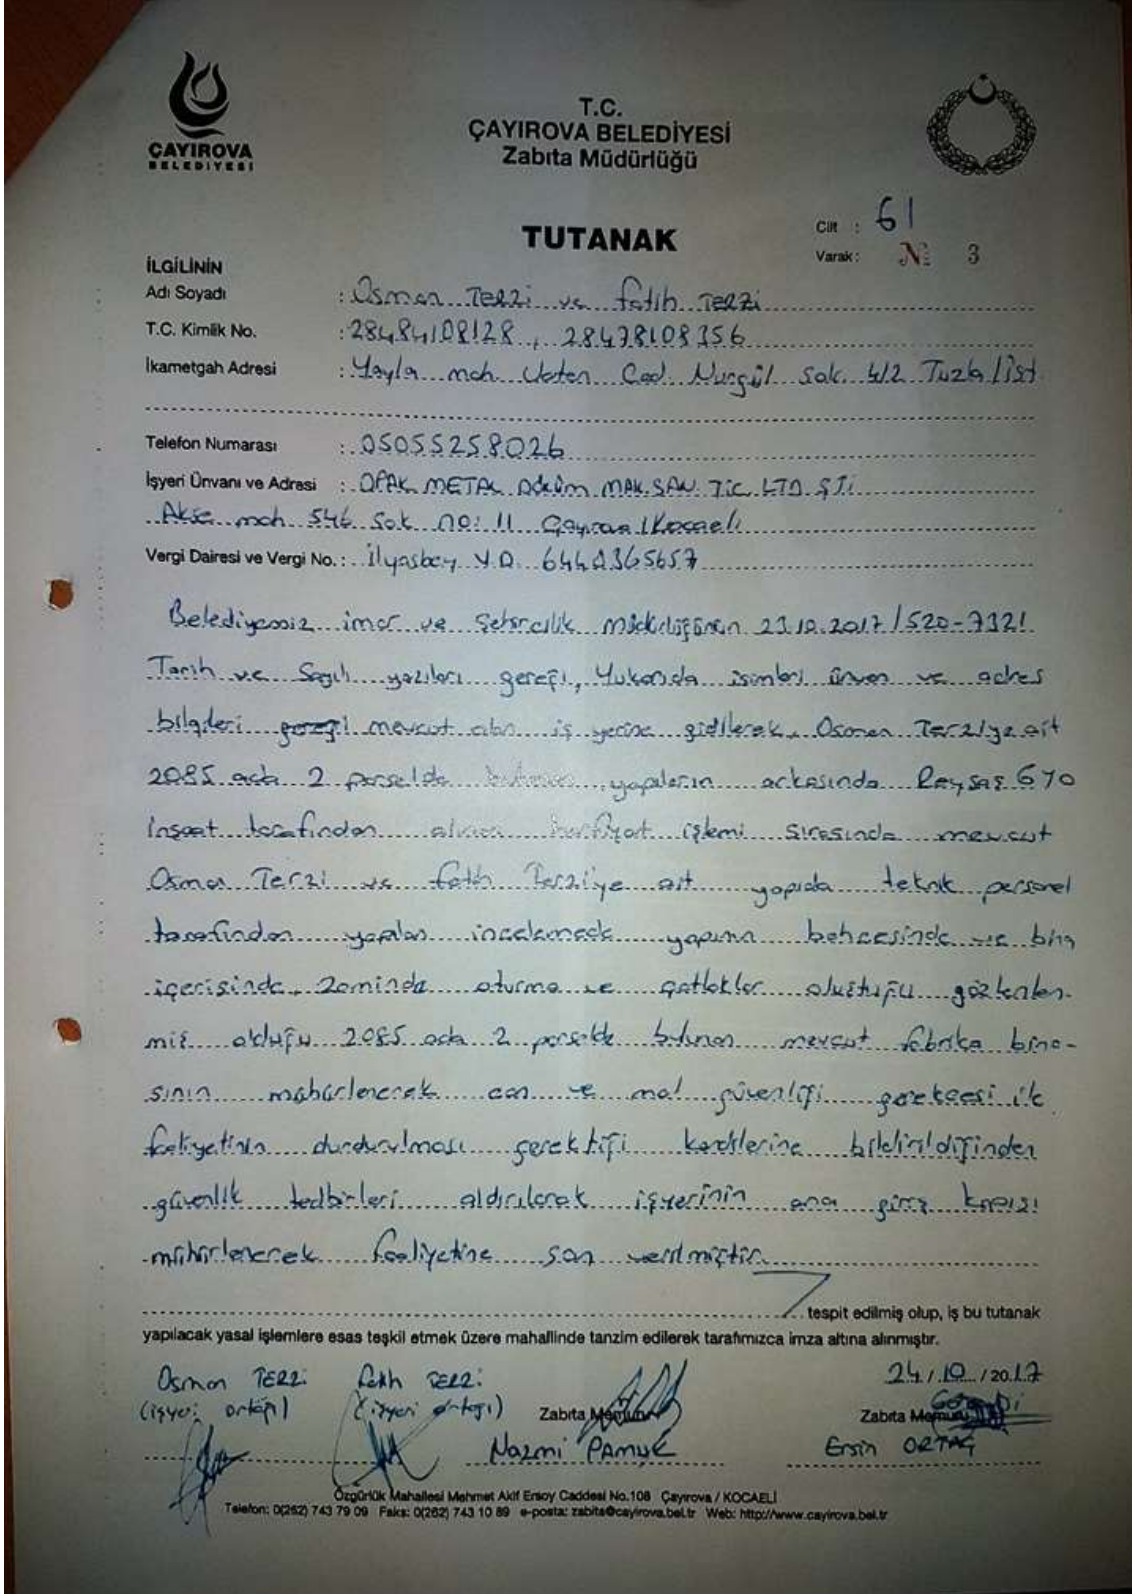 ÇAYIROVA
BELEDİYESİ
T.C.
ÇAYIROVA BELEDİYESİ
Zabıta Müdürlüğü
TUTANAK
Cilt : 61
Varak : № 3
İLGİLİNİN
Adı Soyadı : Osman TERZİ ve Fatih TERZİ
T.C. Kimlik No. : 28484108128, 28478108356
İkametgah Adresi : Yayla mah Vatan Cad Nurgül Sok 4/2 Tuzla/İst
Telefon Numarası : 05055258026
İşyeri Ünvanı ve Adresi : OPAK METAL DÖKÜM MAK. SAN. TİC. LTD. ŞTİ
Akse mah 546 Sok no: 11 Çayırova/Kocaeli
Vergi Dairesi ve Vergi No. : İlyasbey V.D. 6440365657
Belediyemiz imar ve Şehircilik Müdürlüğünün 23.10.2017/520-7321
Tarih ve Sayılı yazıları gereği, Yukarıda isimleri ünvan ve adres
bilgileri mevcut olan iş yerine gidilerek, Osman Terziye ait
2085 ada 2 parselde bulunan yapıların arkasında Reysaş GYO
İnşaat tarafından alınan hafriyat işlemi sırasında mevcut
Osman Terzi ve Fatih Terzi'ye ait yapıda teknik personel
tarafından yapılan incelemede yapının bahçesinde ve bina
içerisinde, zeminde oturma ve çatlaklar oluştuğu gözlenlen-
miş olduğu 2085 ada 2 parselde bulunan mevcut fabrika bina-
sının mühürlenerek can ve mal güvenliği gerekçesi ile
faaliyetinin durdurulması gerektiği kendilerine bildirildiğinden
güvenlik tedbirleri aldırılarak işyerinin ana giriş kapısı
mühürlenerek faaliyetine son verilmiştir.
tespit edilmiş olup, iş bu tutanak
yapılacak yasal işlemlere esas teşkil etmek üzere mahallinde tanzim edilerek tarafımızca imza altına alınmıştır.
24/10/2017
Osman TERZİ Fatih TERZİ
(işyeri ortağı) (işyeri ortağı) Zabıta Memuru Zabıta Memuru
Nazmi PAMUK Ersin ORTAĞ
Özgürlük Mahallesi Mehmet Akif Ersoy Caddesi No.108 Çayırova / KOCAELİ
Telefon: 0(262) 743 79 09 Faks: 0(262) 743 10 89 e-posta: zabita@cayirova.bel.tr Web: http://www.cayirova.bel.tr